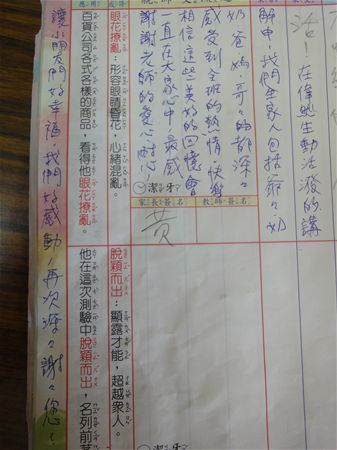 活！在生動活潑的講
解中，我們全家人包括爺々、奶
奶爸媽、哥々的都深々
感受到全班的熱情、快樂
相信這些美好的回憶會
一直在大家心中，最感
謝謝老師的愛心、耐心！
潔牙
家長簽名
教師簽名
黃
眼花撩亂：形容眼睛昏花，心緒混亂。
百貨公司各式各樣的商品，看得他眼花撩亂。
脫穎而出：顯露才能，超越眾人。
他在這次測驗中脫穎而出，名列前
讓小朋友們好幸福，我們好感動！再次深々謝々您！
潔牙